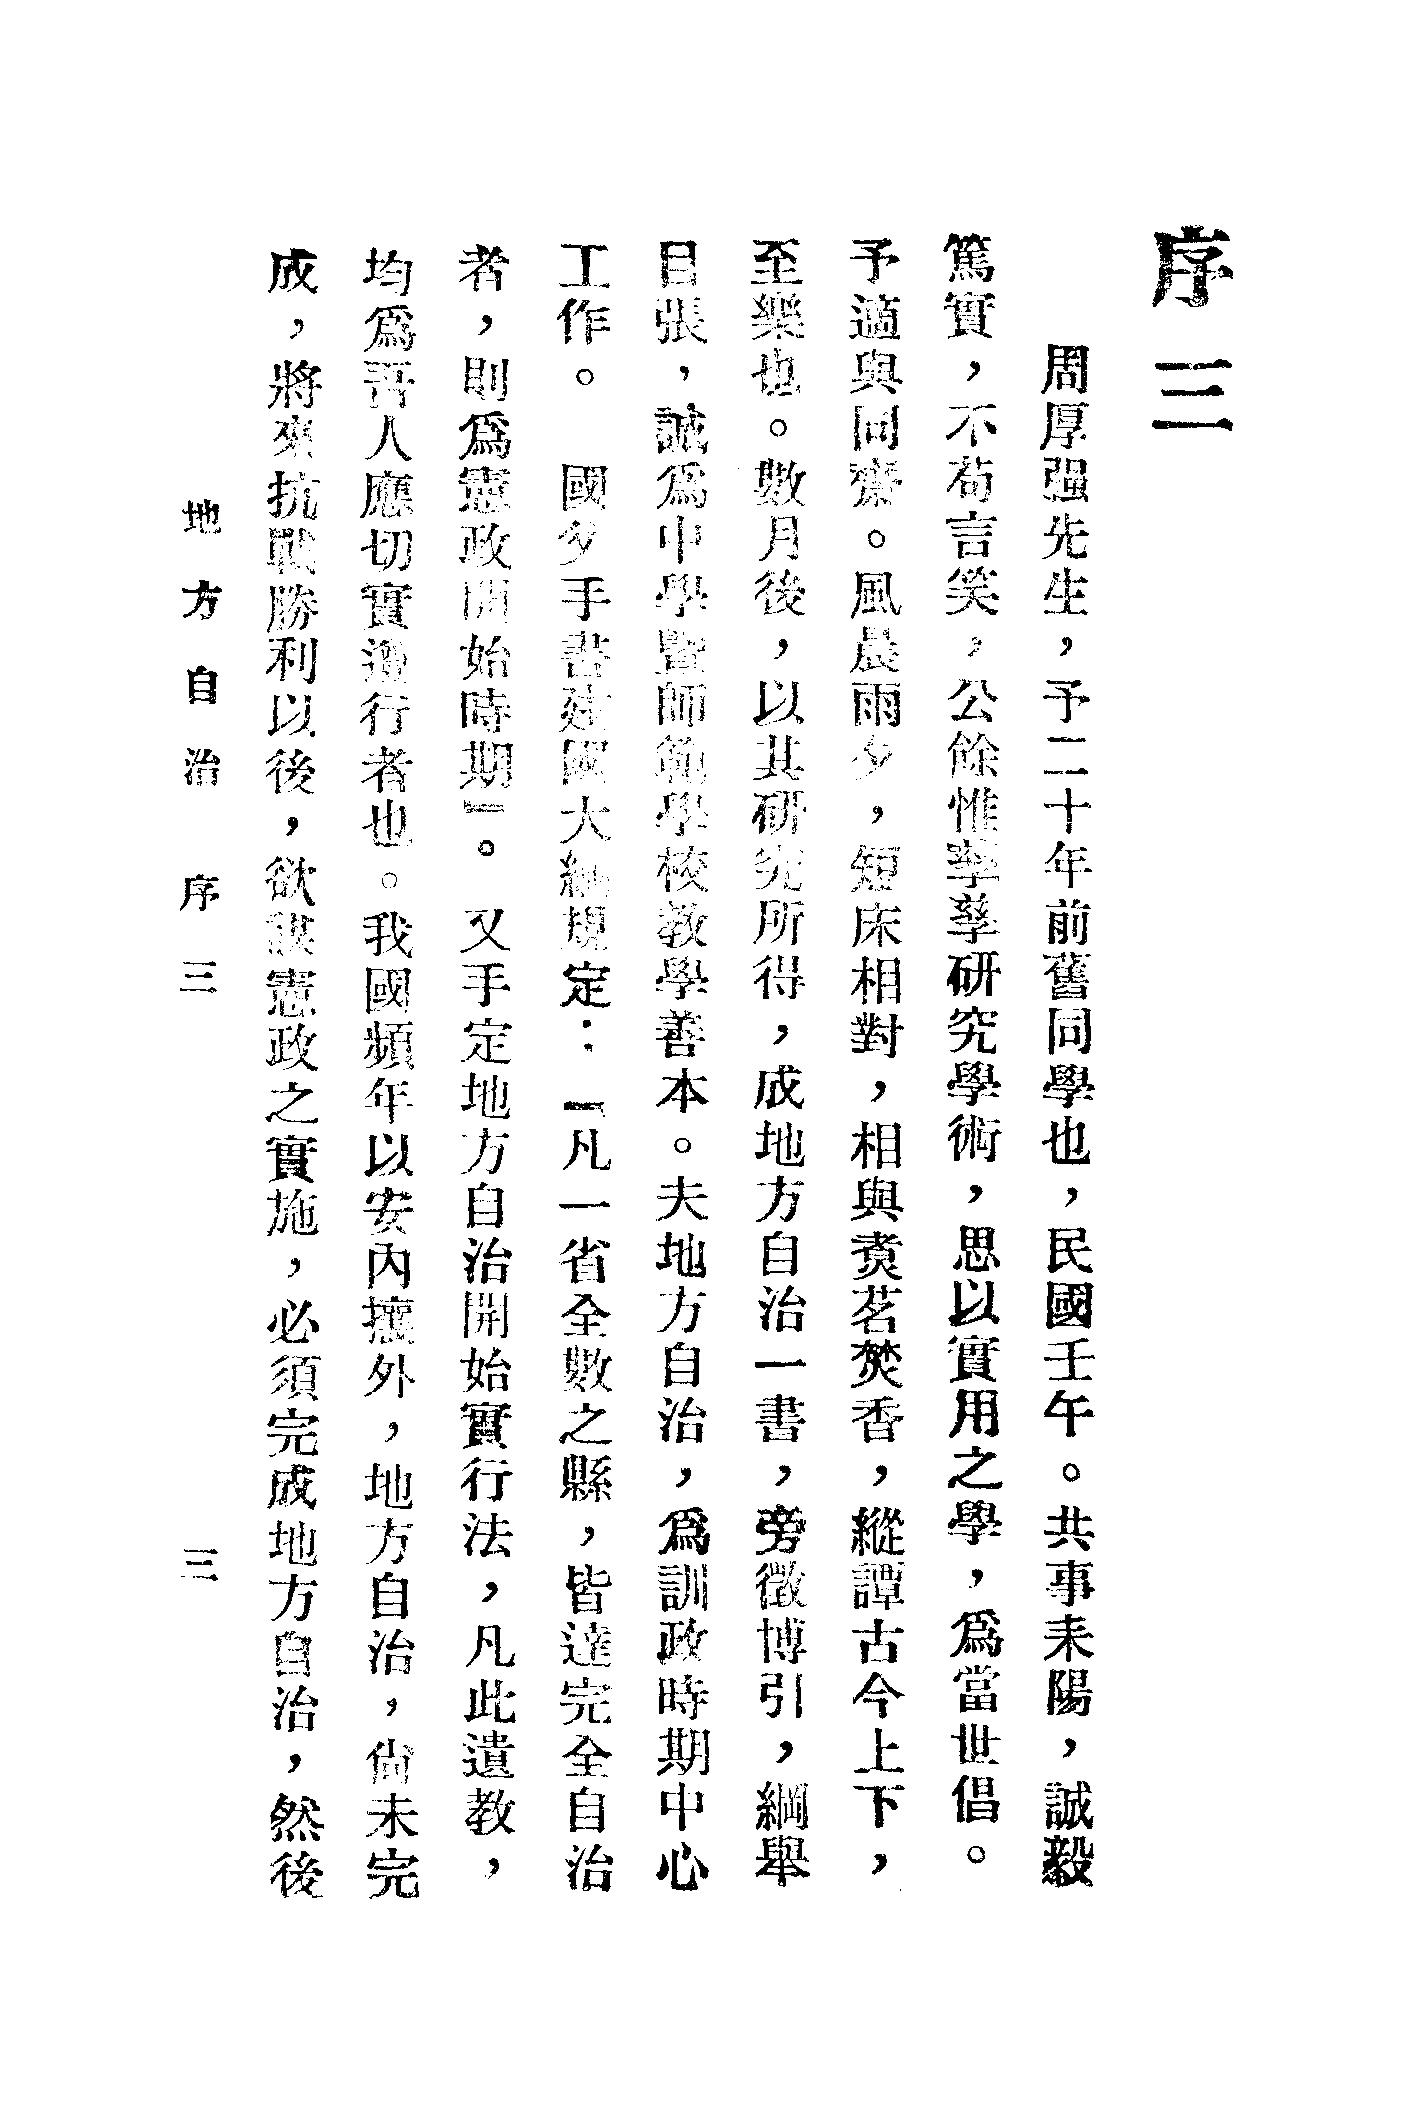 序三
周厚强先生，予二十年前舊同學也，民國壬午。共事耒陽，誠毅
篤實，不苟言笑，公餘惟孳孳研究學術，思以實用之學，爲當世倡。
予適與同齋。風晨雨夕，短床相對，相與煑茗焚香，縱譚古今上下，
至樂也。數月後，以其研究所得，成地方自治一書，旁徵博引，綱舉
目張，誠爲中學暨師範學校教學善本。夫地方自治，爲訓政時期中心
工作。　國父手書建國大綱規定：『凡一省全數之縣，皆達完全自治
者，則爲憲政開始時期』。又手定地方自治開始實行法，凡此遺教，
均爲吾人應切實遵行者也。我國頻年以安內攘外，地方自治，尙未完
成，將來抗戰勝利以後，欲謀憲政之實施，必須完成地方自治，然後
地方自治　序三　三